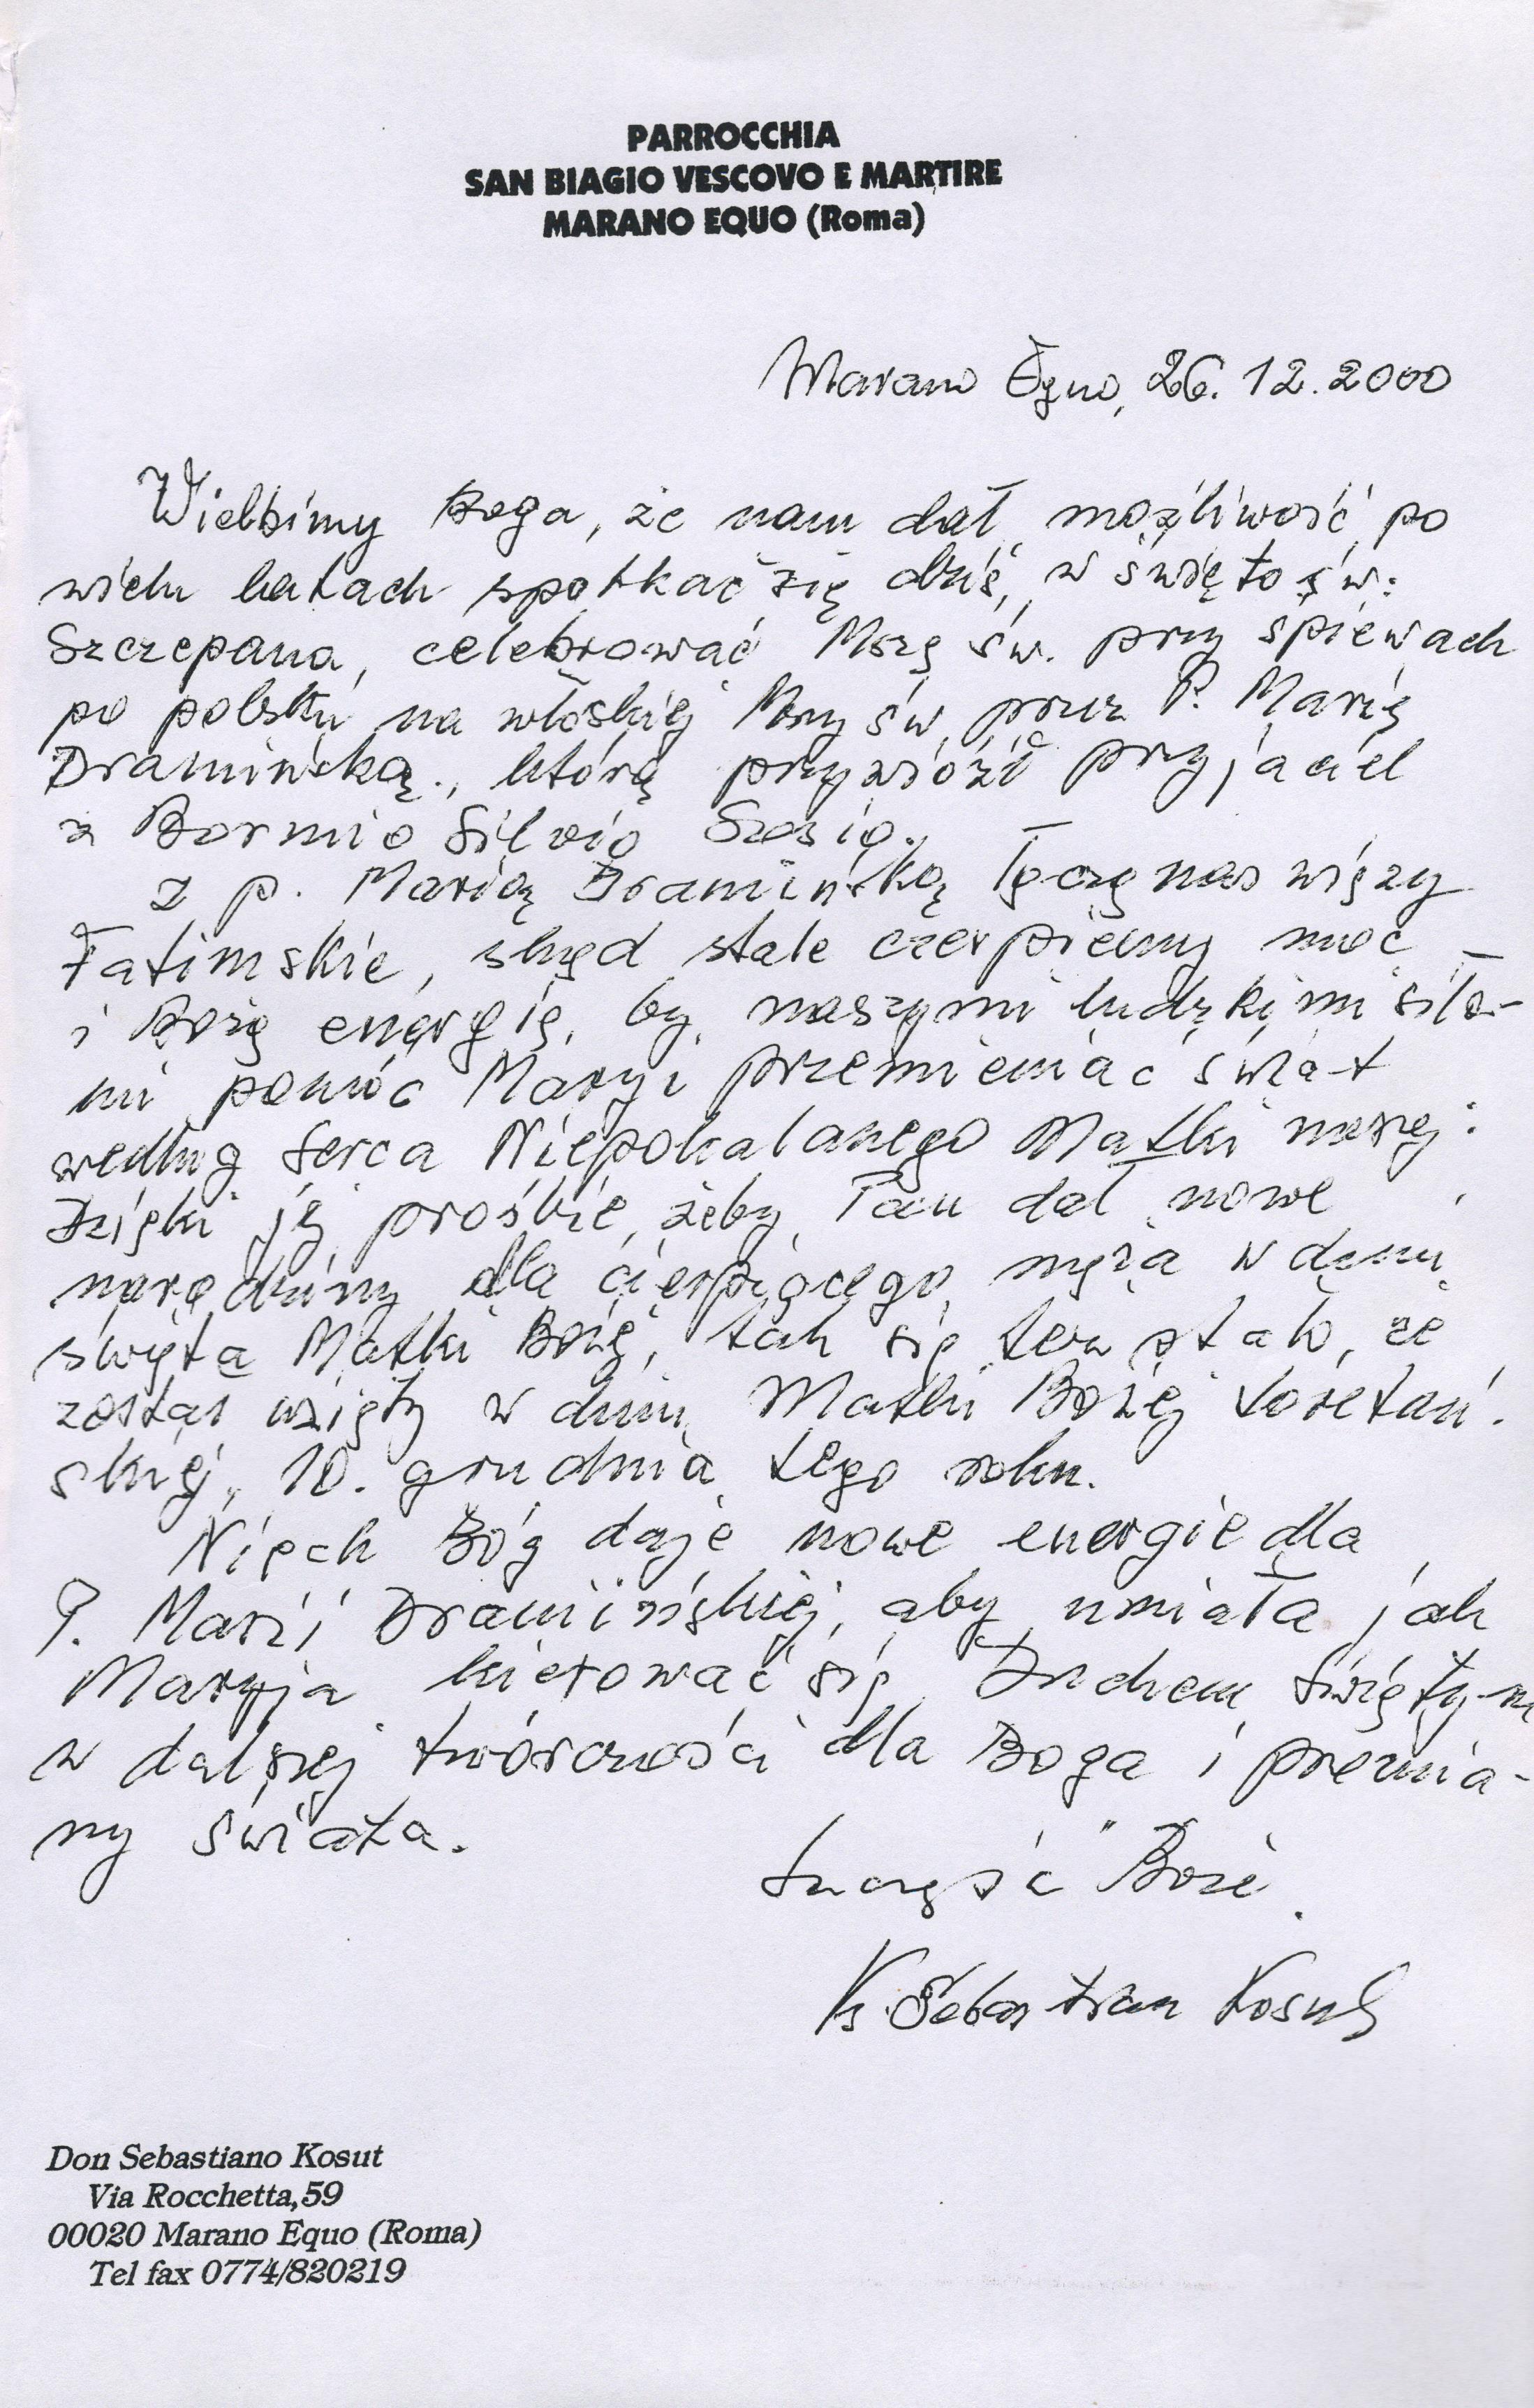 PARROCCHIA
SAN BIAGIO VESCOVO E MARTIRE
MARANO EQUO (Roma)
Marano Equo, 26.12.2000
Wielbimy Boga, że nam dał możliwość po
wielu latach spotkać się dziś, w święto św.
Szczepana, celebrować Mszę św. przy śpiewach
po polsku na włoskiej Mszy św. przez P. Marię
Dramińską, którą przywiózł przyjaciel
z Bormio Silvio
Z p. Marią Dramińską łączą nas więzy
Fatimskie, skąd stale czerpiemy moc
i Bożą energię, by naszymi ludzkimi siła-
mi pomóc Maryi przemieniać świat
według Serca Niepokalanego Matki naszej.
Dzięki jej prośbie, żeby Pan dał nowe
narodziny dla cierpiącego męża w dniu
święta Matki Bożej, tak się też stało, że
został wzięty w dniu Matki Bożej Loretań-
skiej, 10. grudnia tego roku.
Niech Bóg daje nowe energie dla
P. Marii Dramińskiej, aby umiała jak
Maryja kierować się Duchem Świętym
w dalszej twórczości dla Boga i przemia-
ny świata.
Szczęść Boże
Ks. Sebastian Kosut
Don Sebastiano Kosut
Via Rocchetta,59
00020 Marano Equo (Roma)
Tel fax 0774/820219